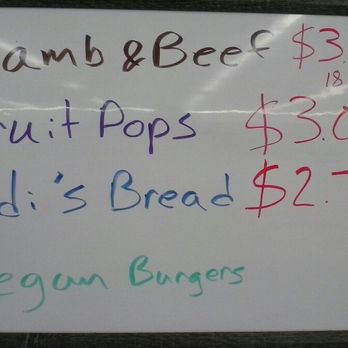 amb & Beef $3.
18
uit Pops $3.0
di's Bread $2.
egan Burgers